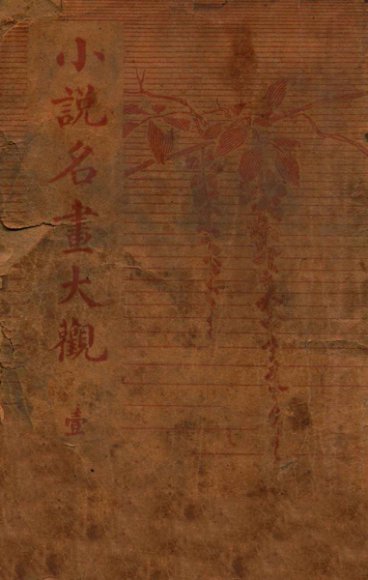 小說名畫大觀
壹